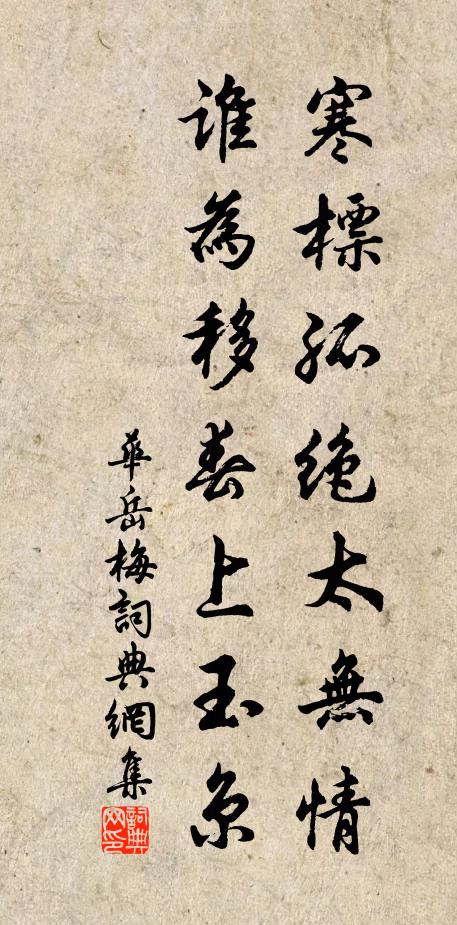 寒標孤絶太無情
誰為移春上玉京
華岳梅詞典網集
詞典網印